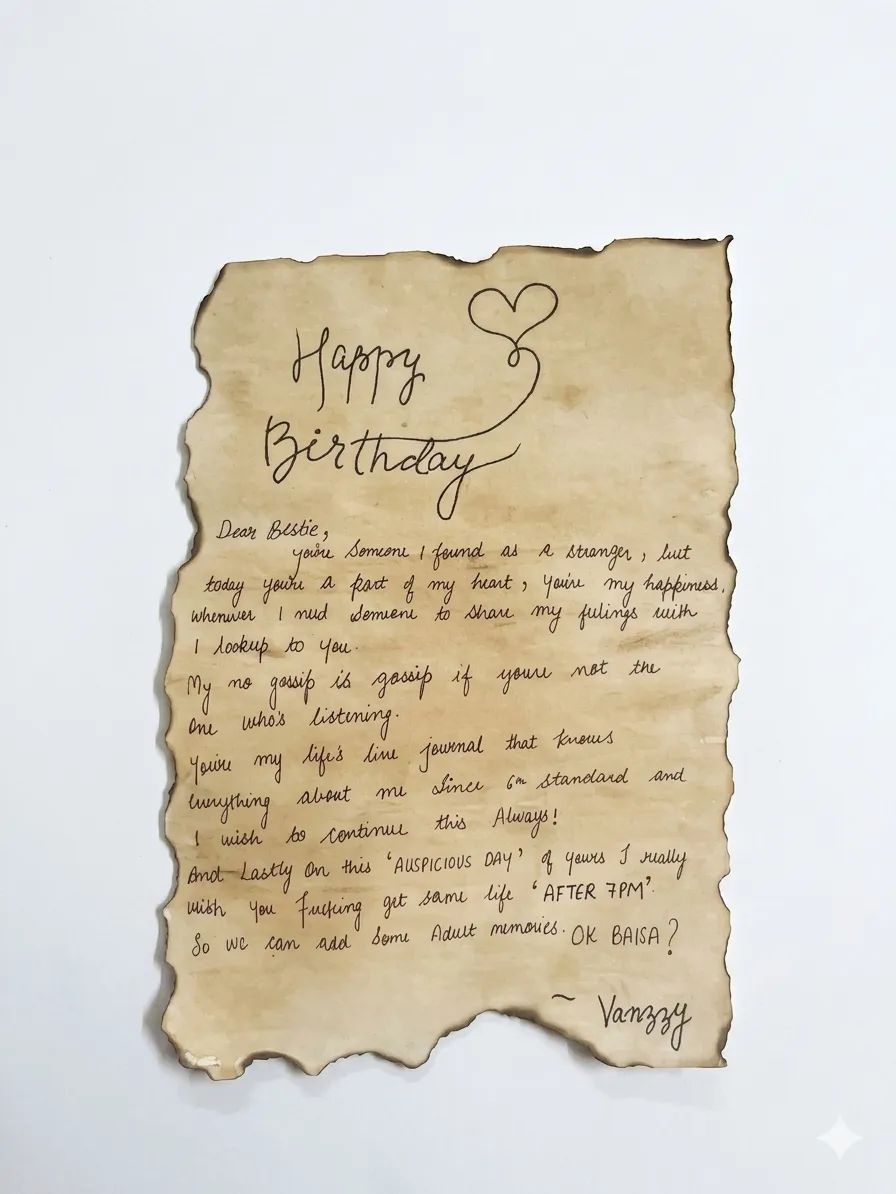 Happy
Birthday
Dear Bestie,
you're someone I found as a stranger, but
today you're a part of my heart, you're my happiness,
whenever I need someone to share my feelings with
I lookup to you.
My no gossip is gossip if youre not the
one who's listening.
You're my life's live journal that knows
everything about me since 6th standard and
I wish to continue this Always!
And Lastly On this 'AUSPICIOUS DAY' of yours I really
wish you fucking get some life 'AFTER 7PM'.
So we can add some Adult memories. OK BAISA?
~ Vanzzy